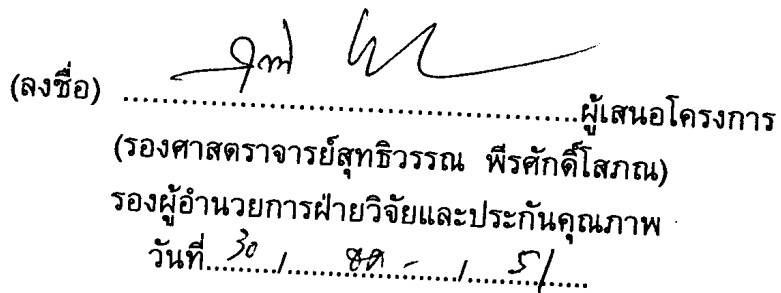 (ลงชื่อ) ................................................ผู้เสนอโครงการ
(รองศาสตราจารย์สุทธิวรรณ พีรศักดิ์โสภณ)
รองผู้อำนวยการฝ่ายวิจัยและประกันคุณภาพ
วันที่...30..../............../....51......